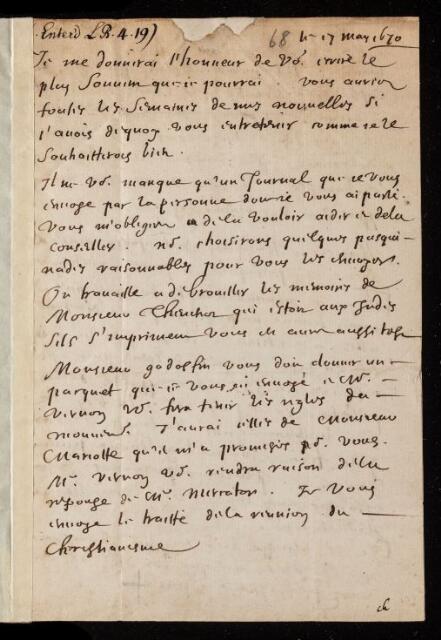 Enterd LB. 4. 19)
68 le 17 may 1670
Je me donnerai l'honneur de Vo. ecrire le
plus souvent que ie pourrai. vous auriez
toutes les semaines de mes nouvelles si
j'avois dequoy vous entretenir comme ie le
souhaitterois bien.
Il ne vo. manque qu'un Journal que ie vous
envoye par la personne dont ie vous ai parlé.
vous m'obligerez de la vouloir aider et de la
conseiller. no. choisirons quelques pasqui-
nades raisonnables pour vous les envoyer.
On travaille a debrouiller les memoires de
Monsieur Thevenot qui estoit aux Indes
s'ils s'impriment vous en aurez aussitost
Monsieur godolfin vous doit donner un
pacquet que ie vous ai envoyé et Mr.
Vernon vo. fera tenir les regles du
mouvement. J'aurai celles de Monsieur
Mariotte qu'il m'a promises po. vous.
Mr. Vernon vo. rendra raison de la
response de Mr. Mercator. Je vous
envoye le traitté de la reunion du
Christianisme